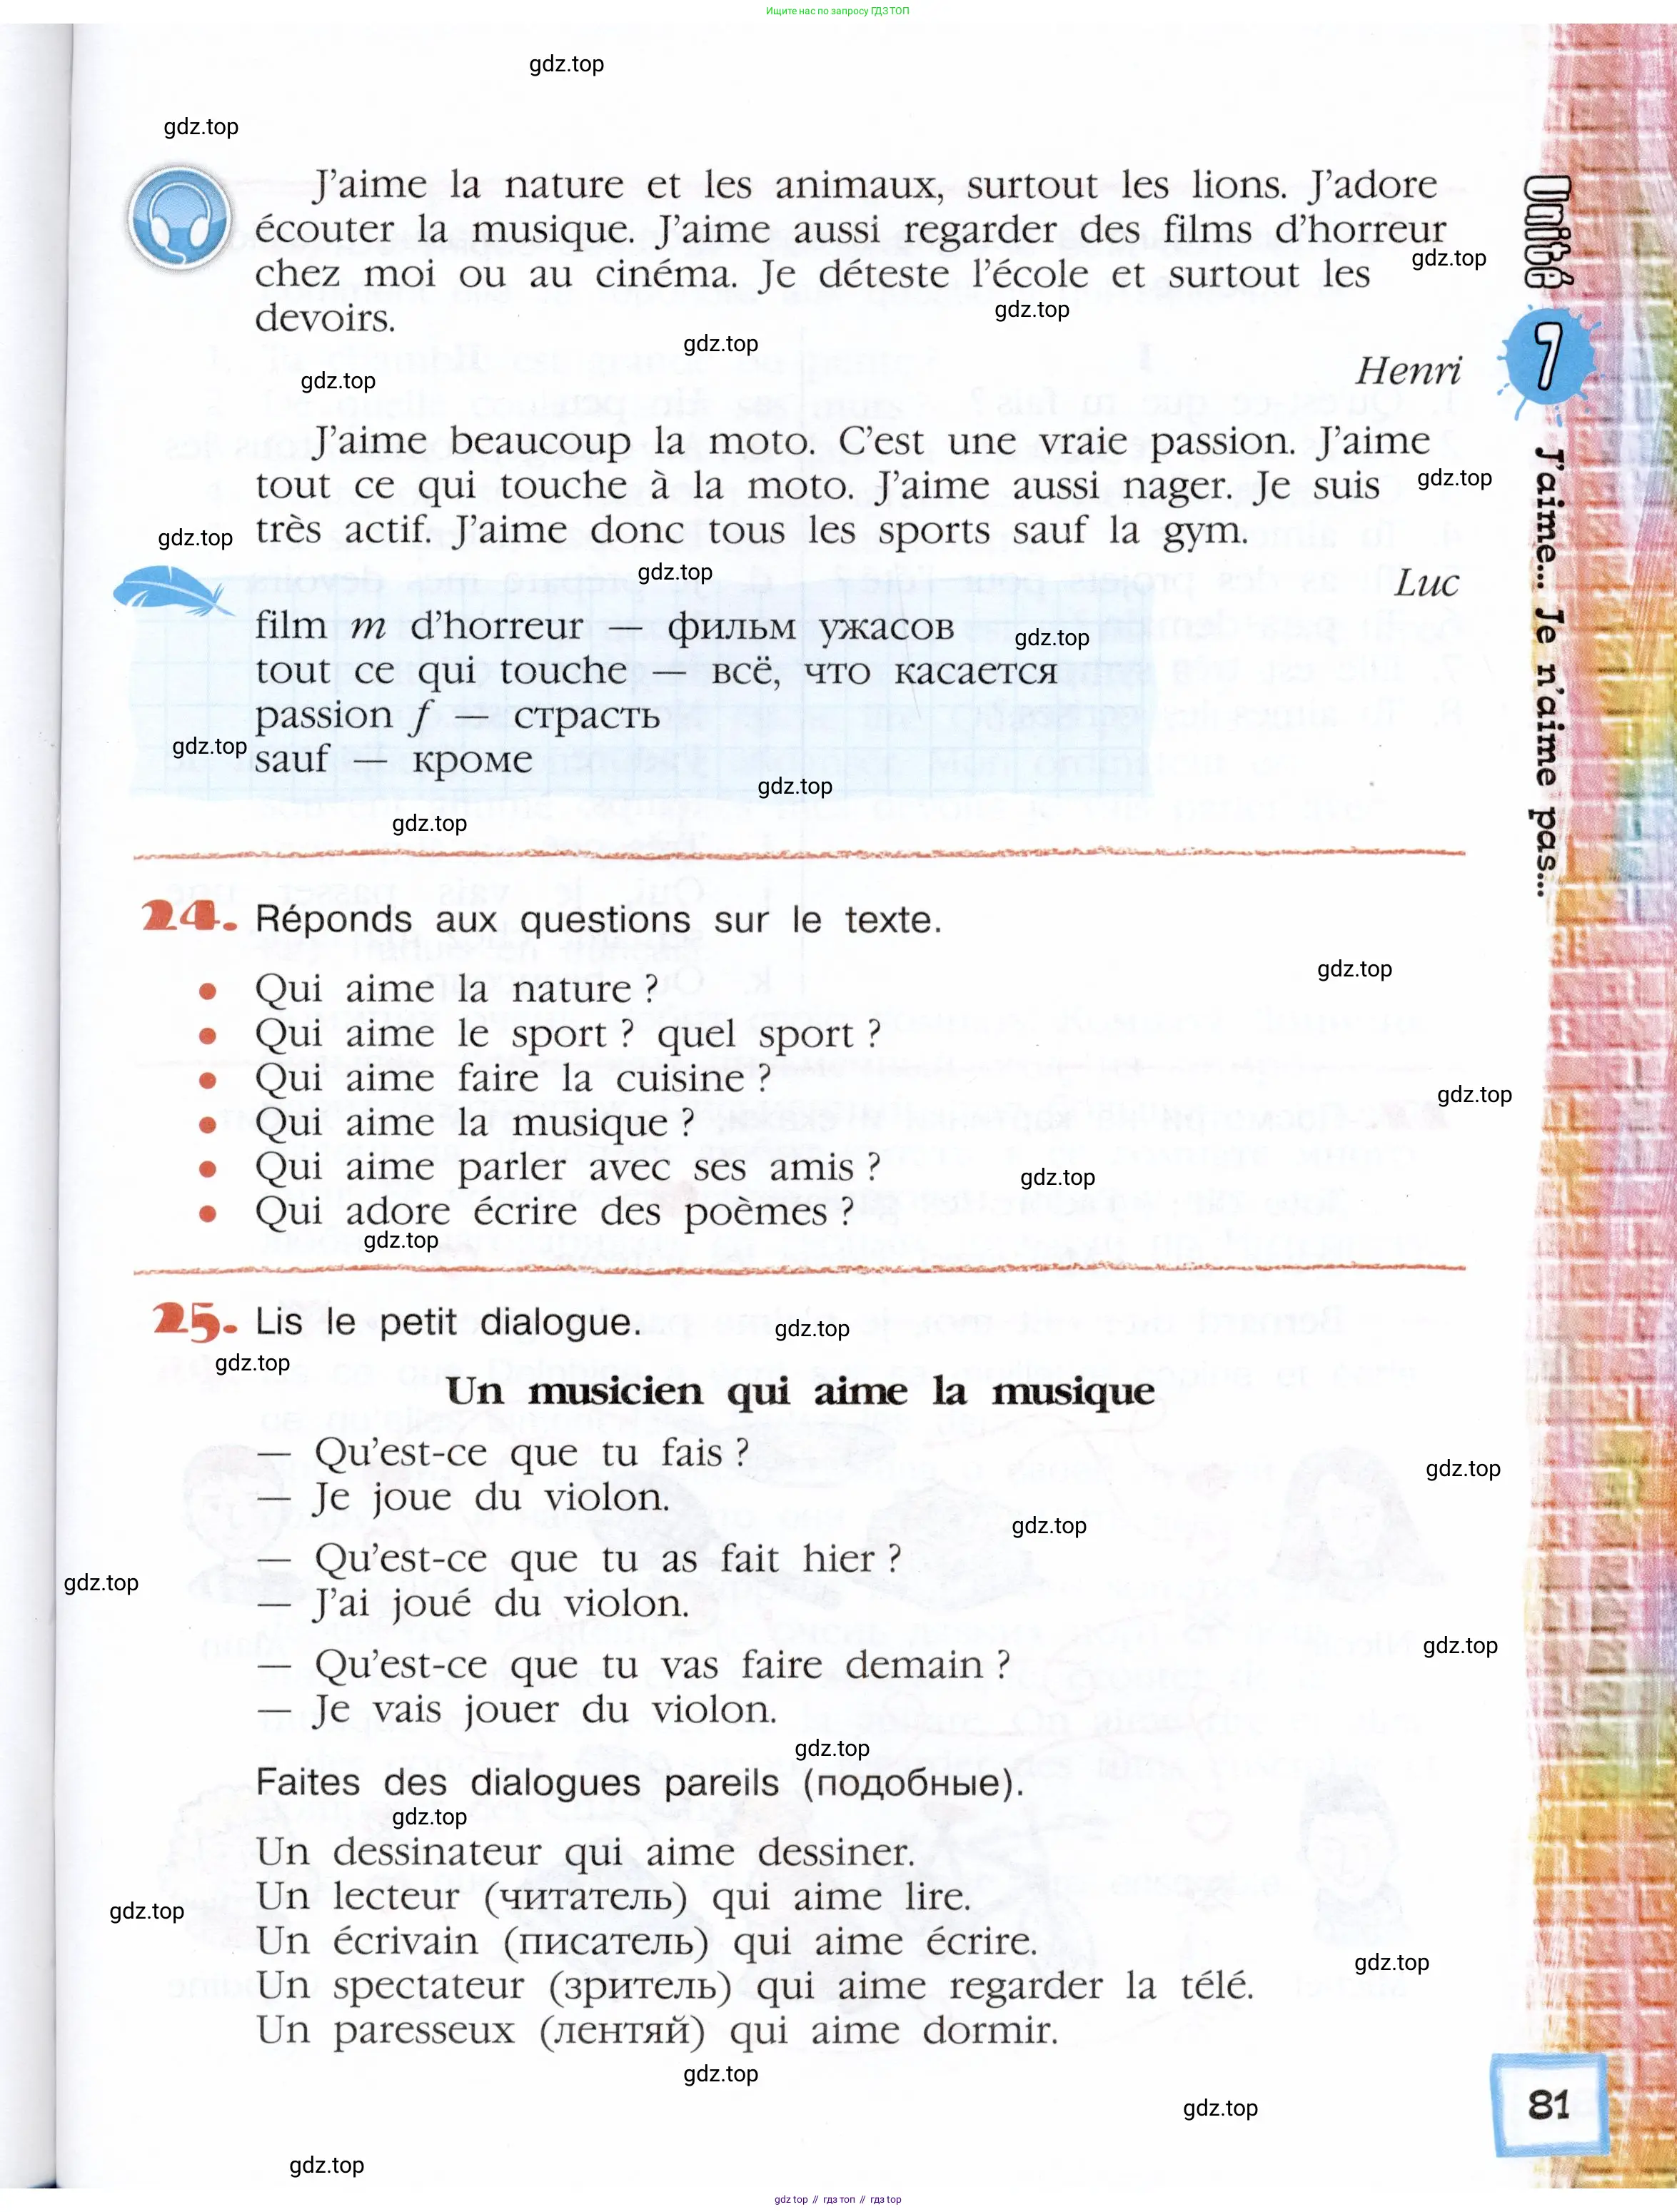 Ищите нас по запросу ГДЗ ТОП
gdz.top
gdz.top
J'aime la nature et les animaux, surtout les lions. J'adore
écouter la musique. J'aime aussi regarder des films d'horreur
gdz.top
chez moi ou au cinéma. Je déteste l'école et surtout les
gdz.top
devoirs.
gdz.top
gdz.top
Henri
J'aime beaucoup la moto. C'est une vraie passion. J'aime
tout ce qui touche à la moto. J'aime aussi nager. Je suis
gdz.top
très actif. J'aime donc tous les sports sauf la gym.
gdz.top
gdz.top
Luc
film m d'horreur — фильм ужасов
gdz.top
tout ce qui touche — всё, что касается
passion f — страсть
gdz.top
sauf — кроме
gdz.top
gdz.top
24. Réponds aux questions sur le texte.
gdz.top
• Qui aime la nature ?
• Qui aime le sport ? quel sport ?
• Qui aime faire la cuisine ?
gdz.top
• Qui aime la musique ?
• Qui aime parler avec ses amis ?
gdz.top
• Qui adore écrire des poèmes ?
gdz.top
25. Lis le petit dialogue.
gdz.top
gdz.top
Un musicien qui aime la musique
— Qu'est-ce que tu fais ?
gdz.top
— Je joue du violon.
gdz.top
— Qu'est-ce que tu as fait hier ?
gdz.top
— J'ai joué du violon.
gdz.top
— Qu'est-ce que tu vas faire demain ?
— Je vais jouer du violon.
gdz.top
Faites des dialogues pareils (подобные).
gdz.top
Un dessinateur qui aime dessiner.
Un lecteur (читатель) qui aime lire.
gdz.top
Un écrivain (писатель) qui aime écrire.
gdz.top
Un spectateur (зритель) qui aime regarder la télé.
Un paresseux (лентяй) qui aime dormir.
gdz.top
gdz.top
gdz.top
Unité
7
J'aime... Je n'aime pas...
81
gdz top // гдз топ // гдз top